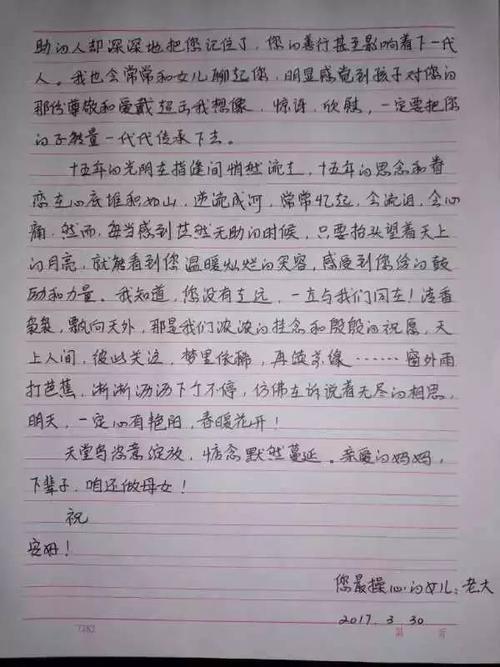 助的人却深深地把您记住了，您的善行甚至影响着下一代
人。我也会常常和女儿聊起您，明显感觉到孩子对您的
那份尊敬和爱戴超乎我想像，惊讶，欣慰，一定要把您
的正能量一代代传承下去。
十五年的光阴在指缝间悄然流走，十五年的思念和眷
恋在心底堆积如山，逆流成河，常常忆起，会流泪，会心
痛，然而，每当感到茫然无助的时候，只要抬头望着天上
的月亮，就能看到您温暖灿烂的笑容，感受到您给的鼓
励和力量。我知道，您没有走远，一直与我们同在！清香
袅袅，飘向天外，那是我们浓浓的挂念和殷殷的祝愿，天
上人间，彼此关注，梦里依稀，再续亲缘……窗外雨
打芭蕉，淅淅沥沥下个不停，仿佛在诉说着无尽的相思，
明天，一定心有艳阳，春暖花开！
天堂鸟恣意绽放，惦念默然蔓延。亲爱的妈妈，
下辈子，咱还做母女！
祝
安好！
您最操心的女儿：老大
2017.3.30